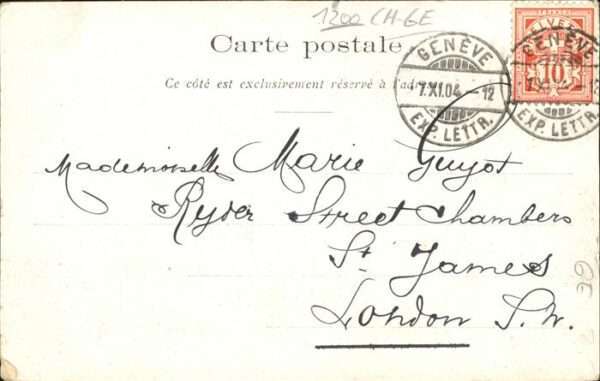 1200 CH-GE
Carte postale
Ce côté est exclusivement réservé à l'adr
GENÈVE
7.XI.04.-12
EXP. LETTR.
HELVETIA
10
GENÈVE
EXP. LETTR.
Mademoiselle Marie Guyot
Ryder Street Chambers
St James
London S.W.